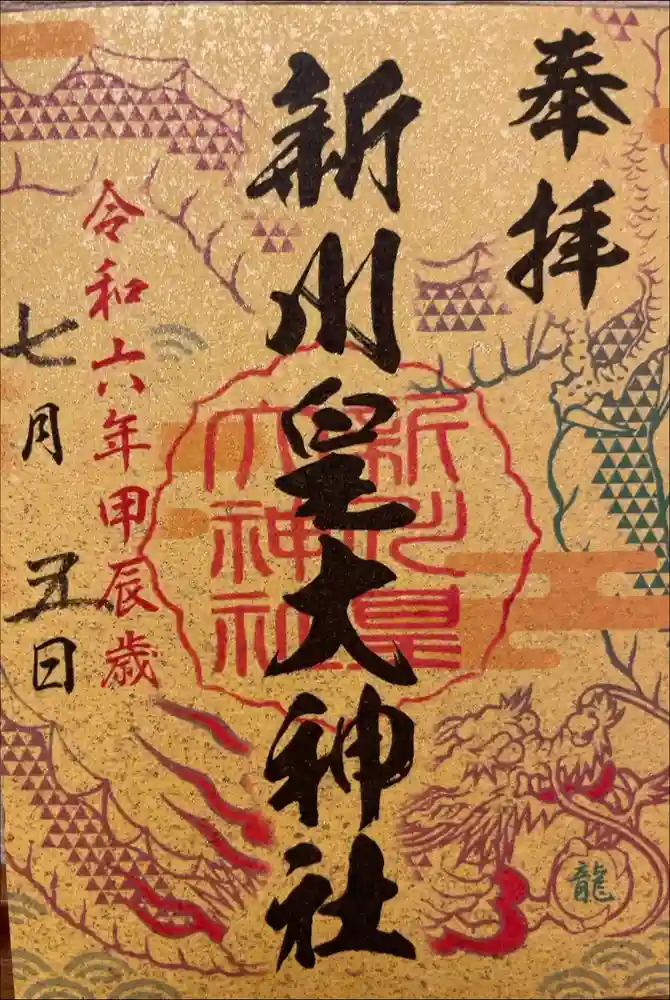 奉拝
新川皇大神社
新川皇
大神社
令和六年甲辰歳
七月五日
龍